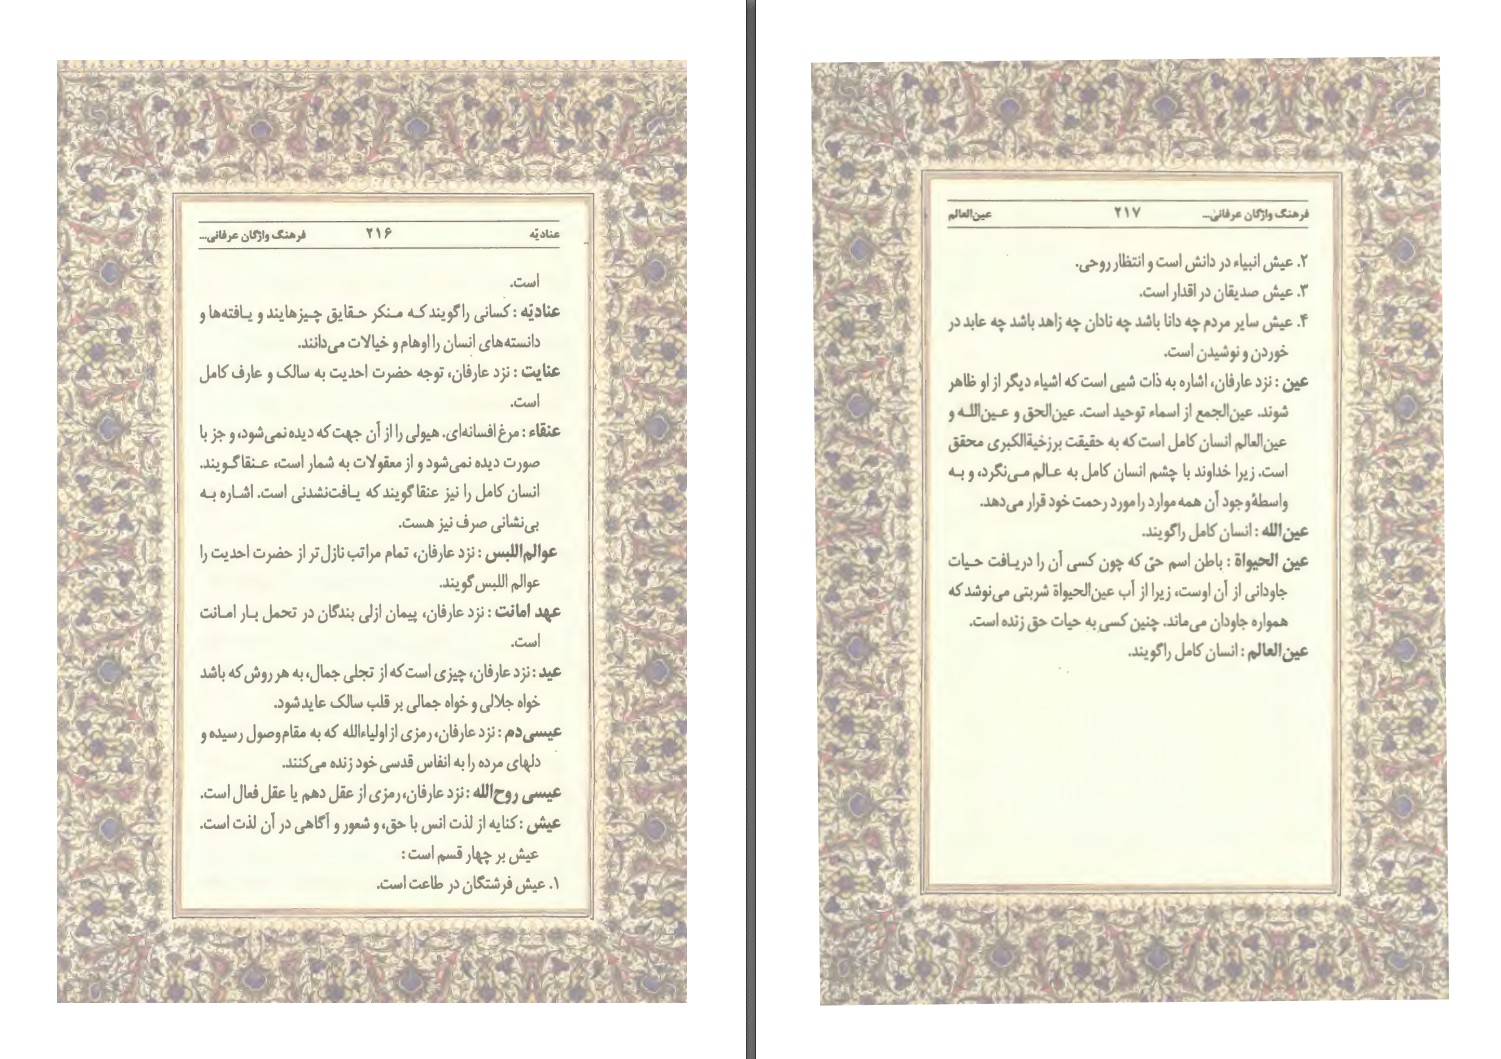 عنادیّه ۲۱۶ فرهنگ واژگان عرفانی...
است.
عنادیّه : کسانی را گویند که منکر حقایق چیزهایند و یافته‌ها و
دانسته‌های انسان را اوهام و خیالات می‌دانند.
عنایت : نزد عارفان، توجه حضرت احدیت به سالک و عارف کامل
است.
عنقاء : مرغ افسانه‌ای. هیولی را از آن جهت که دیده نمی‌شود، و جز با
صورت دیده نمی‌شود و از معقولات به شمار است، عنقا گویند.
انسان کامل را نیز عنقا گویند که یافت‌نشدنی است. اشاره به
بی‌نشانی صرف نیز هست.
عوالم‌اللبس : نزد عارفان، تمام مراتب نازل‌تر از حضرت احدیت را
عوالم اللبس گویند.
عهد امانت : نزد عارفان، پیمان ازلی بندگان در تحمل بار امانت
است.
عید : نزد عارفان، چیزی است که از تجلی جمال، به هر روش که باشد
خواه جلالی و خواه جمالی بر قلب سالک عاید شود.
عیسی‌دم : نزد عارفان، رمزی از اولیاءالله که به مقام وصول رسیده و
دلهای مرده را به انفاس قدسی خود زنده می‌کنند.
عیسی روح‌الله : نزد عارفان، رمزی از عقل دهم یا عقل فعال است.
عیش : کنایه از لذت انس با حق، و شعور و آگاهی در آن لذت است.
عیش بر چهار قسم است :
۱. عیش فرشتگان در طاعت است.
فرهنگ واژگان عرفانی... ۲۱۷ عین‌العالم
۲. عیش انبیاء در دانش است و انتظار روحی.
۳. عیش صدیقان در اقدار است.
۴. عیش سایر مردم چه دانا باشد چه نادان چه زاهد باشد چه عابد در
خوردن و نوشیدن است.
عین : نزد عارفان، اشاره به ذات شیی است که اشیاء دیگر از او ظاهر
شوند. عین‌الجمع از اسماء توحید است. عین‌الحق و عین‌اللـه و
عین‌العالم انسان کامل است که به حقیقت برزخیةالکبری محقق
است. زیرا خداوند با چشم انسان کامل به عالم می‌نگرد، و به
واسطهٔ وجود آن همه موارد را مورد رحمت خود قرار می‌دهد.
عین‌الله : انسان کامل را گویند.
عین الحیواة : باطن اسم حیّ که چون کسی آن را دریافت حیات
جاودانی از آن اوست، زیرا از آب عین‌الحیواة شربتی می‌نوشد که
همواره جاودان می‌ماند. چنین کسی به حیات حق زنده است.
عین‌العالم : انسان کامل را گویند.